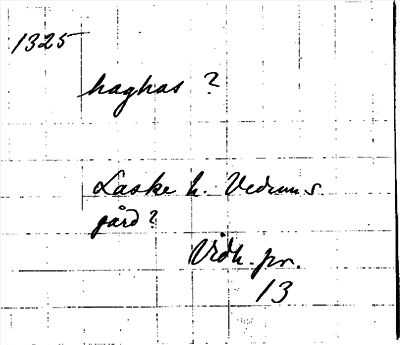 1325
haghas ?
Laske h. Vedum s.
gård?
Vidh. pr.
13